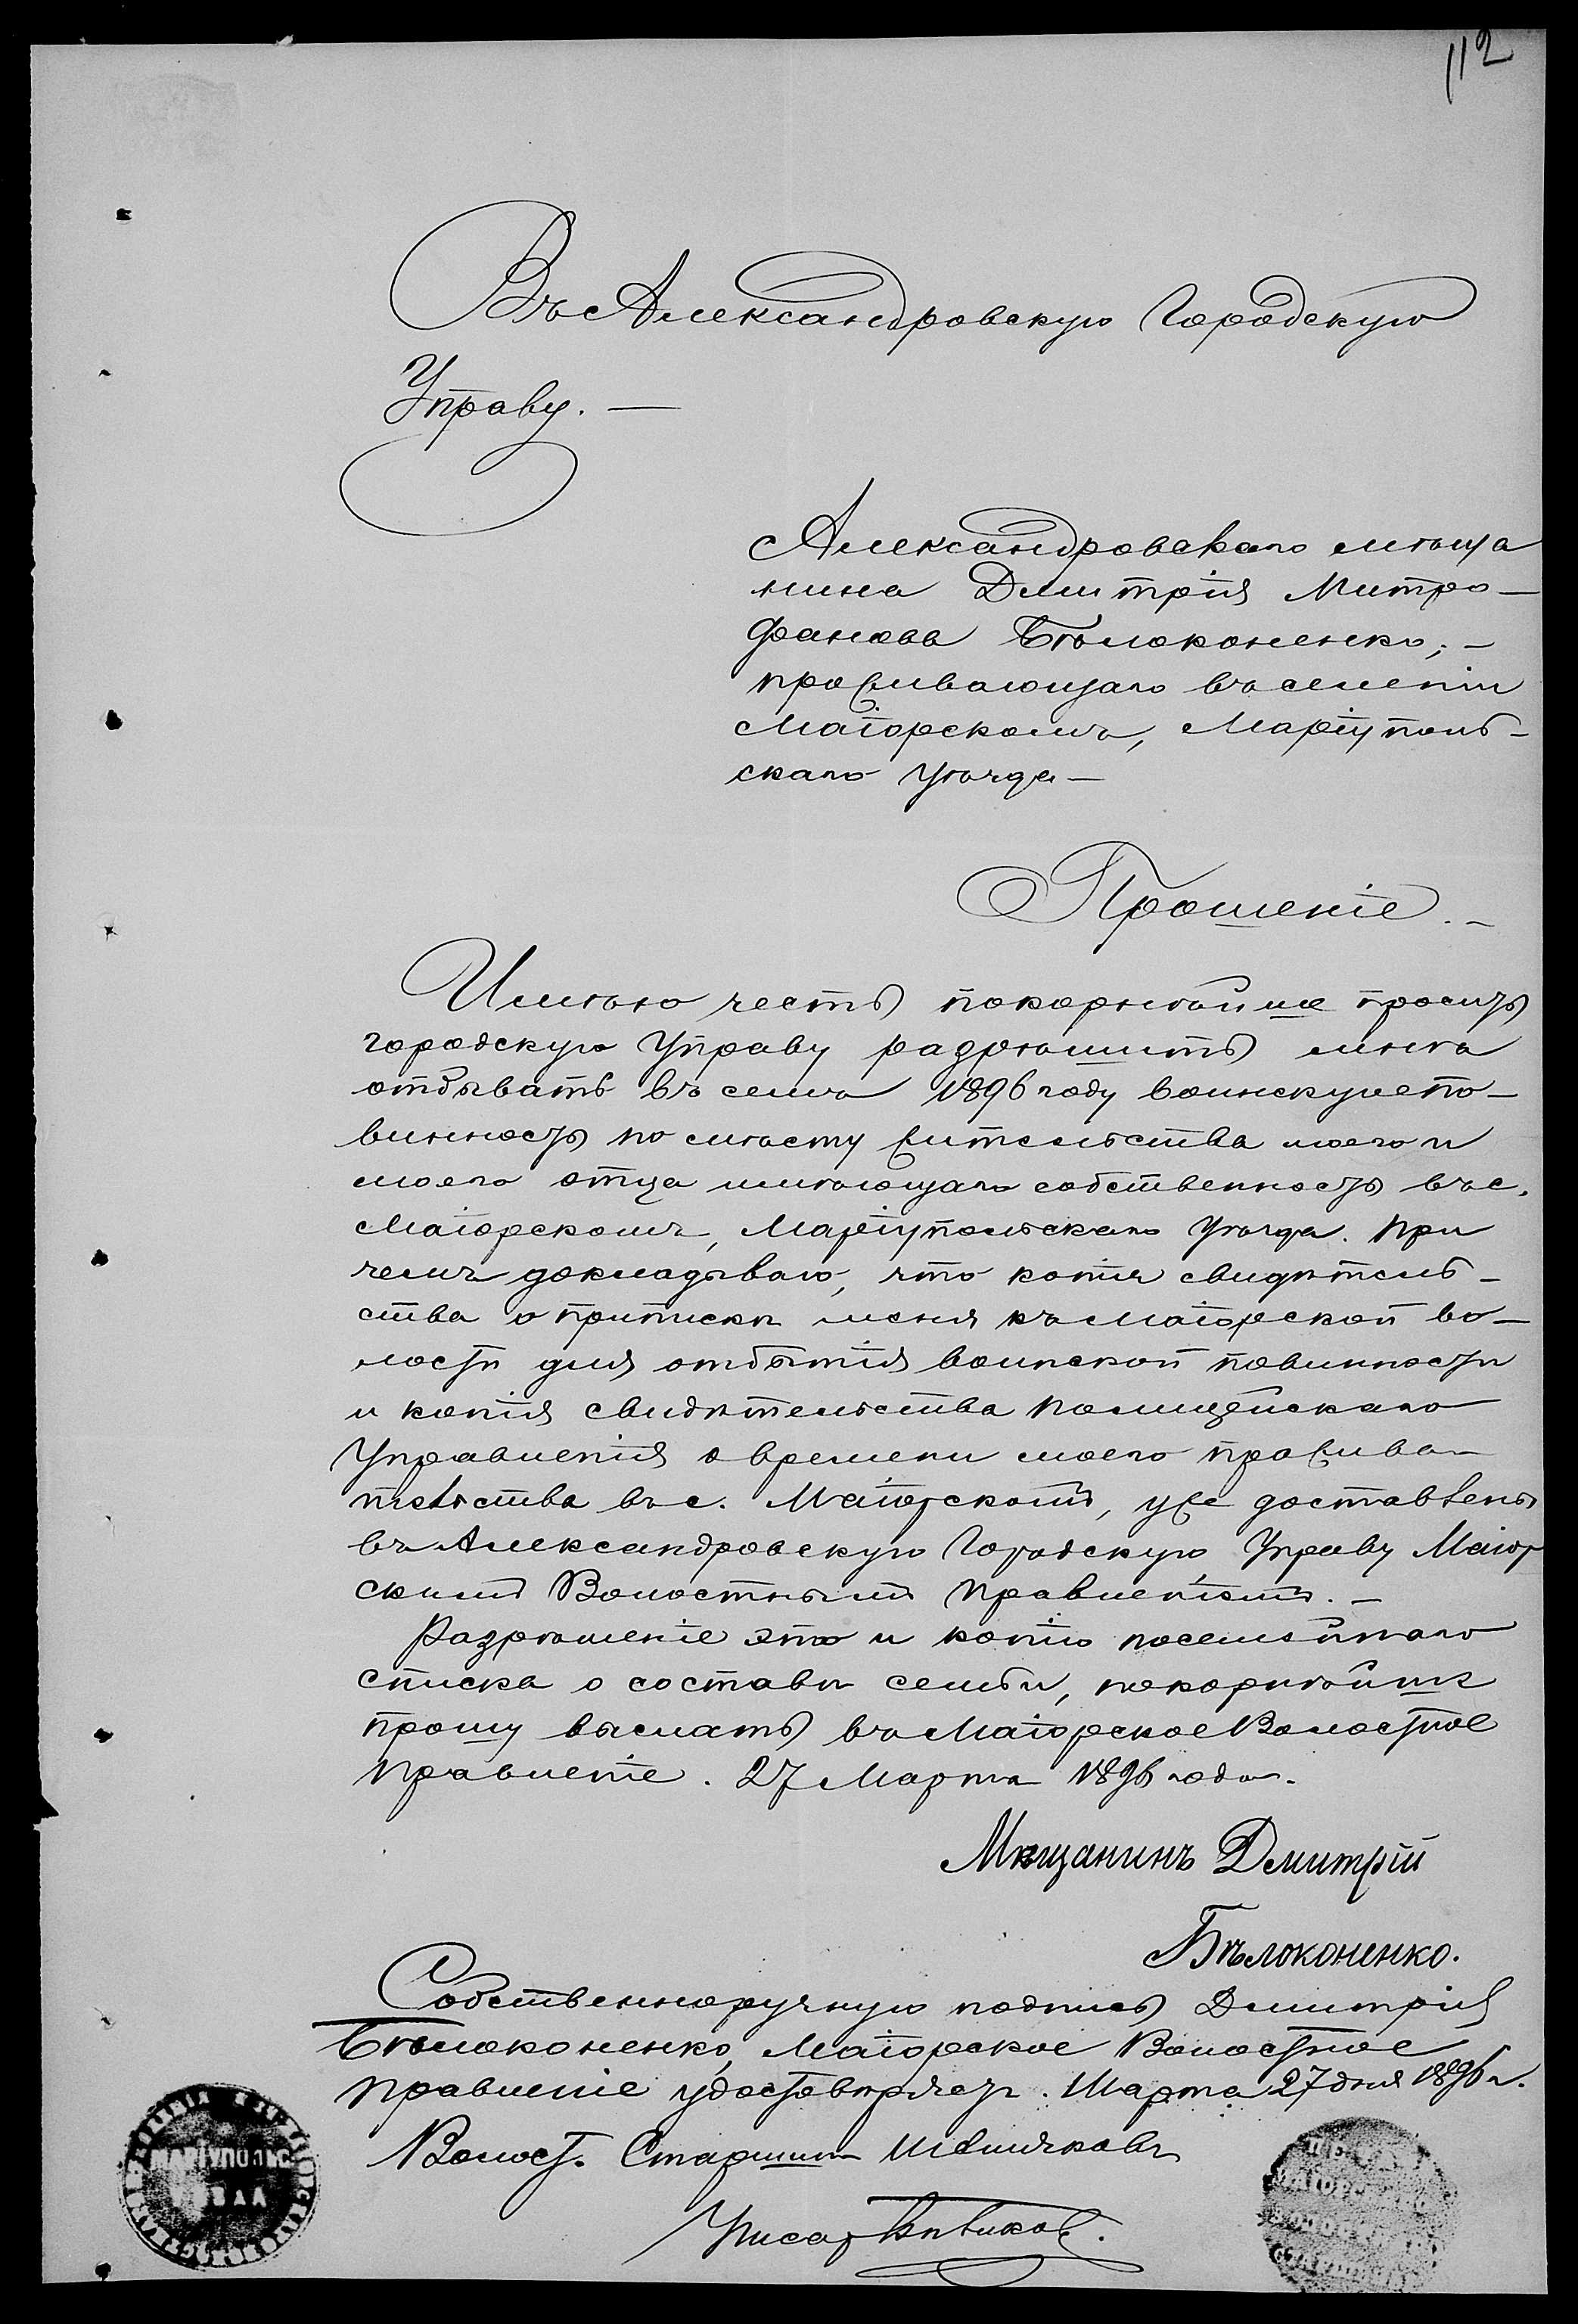 112
Въ Александровскую Городскую
Управу. —
Александровскаго мѣща
нина Дмитрія Митро—
фанова Бѣлоконенко, —
проживающаго въ селеніи
Маіорскомъ, Маріуполь—
скаго Уѣзда —
Прошеніе. —
Имѣю честь покорнѣйше просить
городскую Управу разрѣшить мнѣ
отбывать въ семъ 1896 году воинскую по—
винность по мѣсту жительства моего и
моего отца имѣющаго собственность въ с.
Маіорскомъ, Маріупольскаго Уѣзда. При
чемъ докладываю, что копія свидѣтель—
ства о припискѣ меня къ Маіорской во—
лости для отбытія воинской повинности
и копія свидѣтельства Полицейскаго
Управленія о времени моего прожива—
тельства въ с. Маіорскомъ, уже доставлены
въ Александровскую Городскую Управу Маіор
скимъ Волостнымъ Правленіемъ. —
Разрѣшеніе это и копію посемейнаго
списка о составѣ семьи, покорнѣйше
прошу выслать въ Маіорское Волостное
Правленіе. 27 Марта 1896 года.
Мѣщанинъ Дмитрій
Бѣлоконенко.
Собственноручную подпись Дмитрія
Бѣлоконенко, Маіорское Волостное
Правленіе удостовѣряетъ. Марта 27 дня 1896 г.
Волост. Старшина
Писарь
МАРІУПОЛЬС